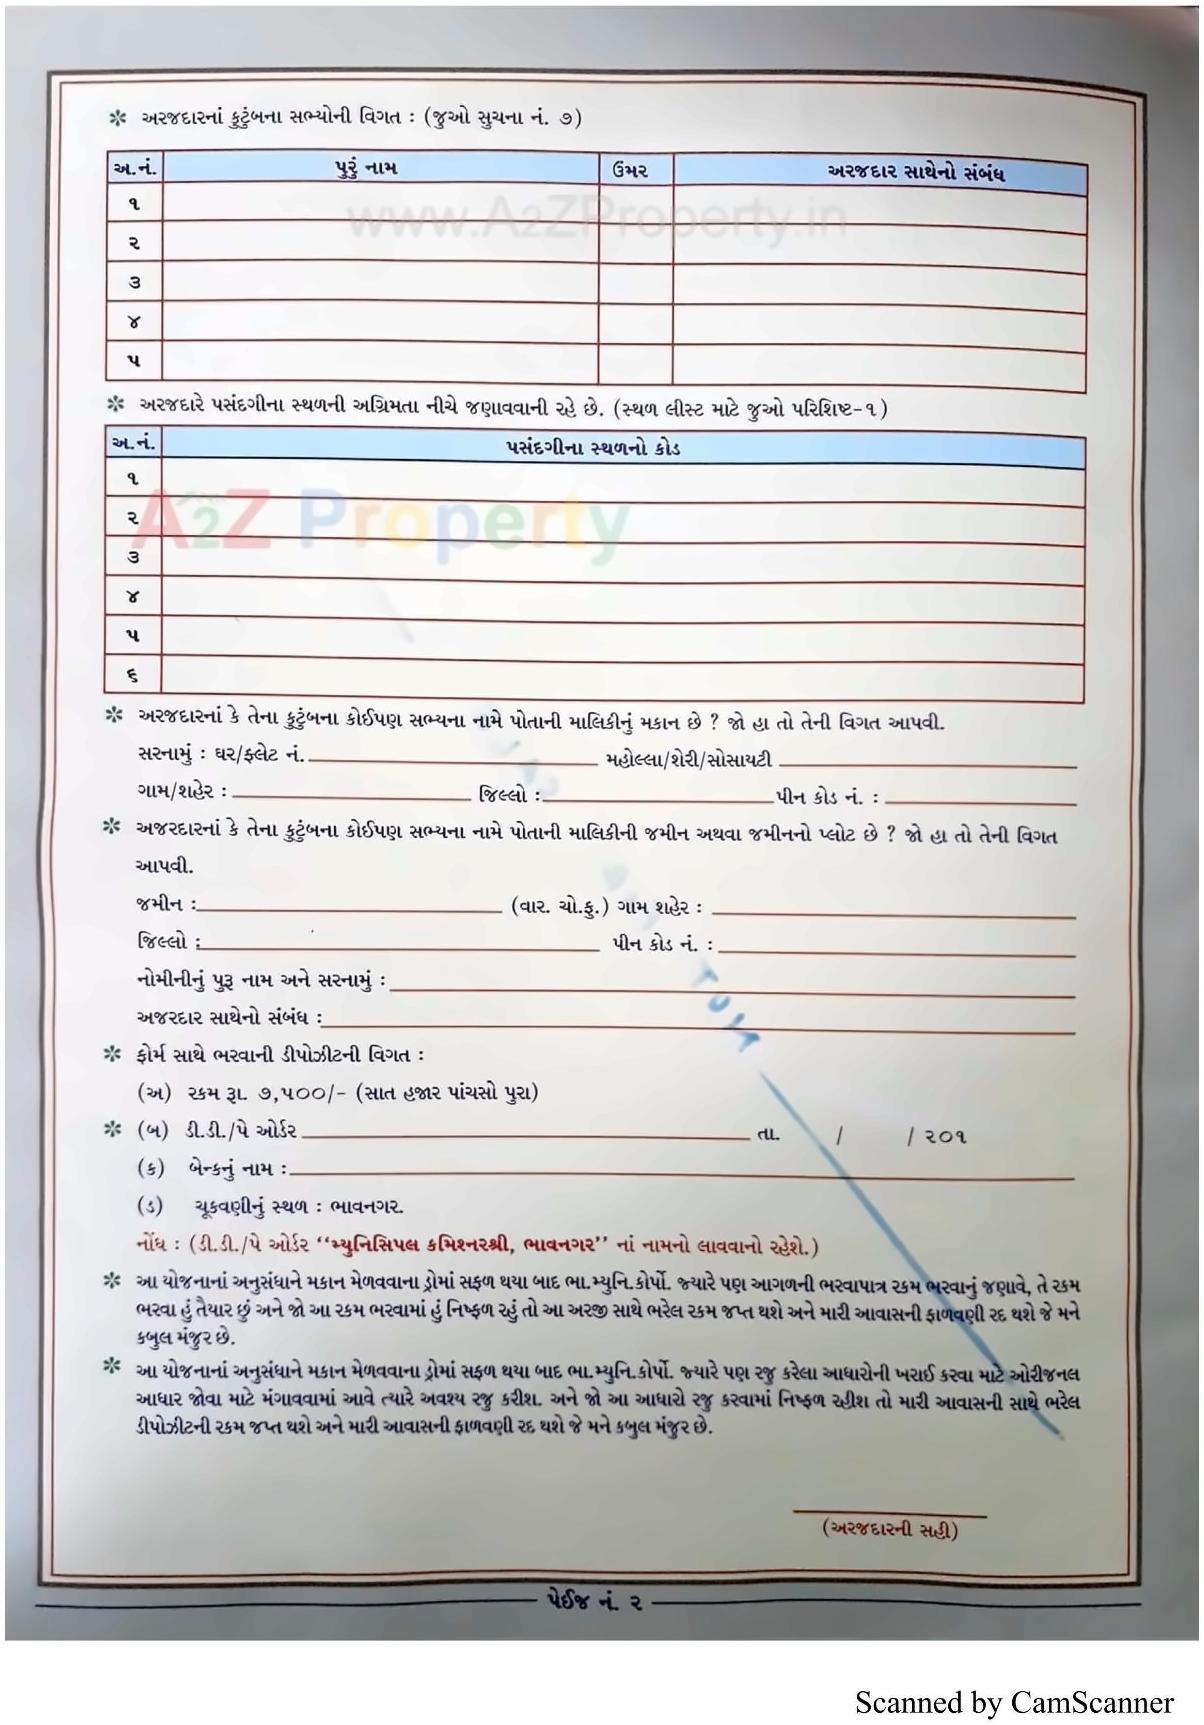 ❇ અરજદારનાં કુટુંબના સભ્યોની વિગત : (જુઓ સુચના નં. ૭)
અ.નં. પુરું નામ ઉંમર અરજદાર સાથેનો સંબંધ
૧
www.A2ZProperty.in
૨
૩
૪
૫
❇ અરજદારે પસંદગીના સ્થળની અગ્રિમતા નીચે જણાવવાની રહે છે. (સ્થળ લીસ્ટ માટે જુઓ પરિશિષ્ટ-૧)
અ.નં. પસંદગીના સ્થળનો કોડ
૧
૨
A2Z Property
૩
૪
૫
૬
❇ અરજદારનાં કે તેના કુટુંબના કોઈપણ સભ્યના નામે પોતાની માલિકીનું મકાન છે ? જો હા તો તેની વિગત આપવી.
સરનામું : ઘર/ફ્લેટ નં. મહોલ્લા/શેરી/સોસાયટી
ગામ/શહેર : જિલ્લો : પીન કોડ નં. :
❇ અજરદારનાં કે તેના કુટુંબના કોઈપણ સભ્યના નામે પોતાની માલિકીની જમીન અથવા જમીનનો પ્લોટ છે ? જો હા તો તેની વિગત
આપવી.
જમીન : (વાર. ચો.ફુ.) ગામ શહેર :
જિલ્લો : પીન કોડ નં. :
નોમીનીનું પુરૂ નામ અને સરનામું :
અજરદાર સાથેનો સંબંધ :
❇ ફોર્મ સાથે ભરવાની ડીપોઝીટની વિગત :
(અ) રકમ રૂા. ૭,૫૦૦/- (સાત હજાર પાંચસો પુરા)
❇ (બ) ડી.ડી./પે ઓર્ડર તા. / / ૨૦૧
(ક) બેન્કનું નામ :
(ડ) ચૂકવણીનું સ્થળ : ભાવનગર.
નોંધ : (ડી.ડી./પે ઓર્ડર “મ્યુનિસિપલ કમિશ્નરશ્રી, ભાવનગર” નાં નામનો લાવવાનો રહેશે.)
❇ આ યોજનાનાં અનુસંધાને મકાન મેળવવાના ડ્રોમાં સફળ થયા બાદ ભા.મ્યુનિ.કોર્પો. જ્યારે પણ આગળની ભરવાપાત્ર રકમ ભરવાનું જણાવે, તે રકમ
ભરવા હું તૈયાર છું અને જો આ રકમ ભરવામાં હું નિષ્ફળ રહું તો આ અરજી સાથે ભરેલ રકમ જપ્ત થશે અને મારી આવાસની ફાળવણી રદ થશે જે મને
કબુલ મંજુર છે.
❇ આ યોજનાનાં અનુસંધાને મકાન મેળવવાના ડ્રોમાં સફળ થયા બાદ ભા.મ્યુનિ.કોર્પો. જ્યારે પણ રજુ કરેલા આધારોની ખરાઈ કરવા માટે ઓરીજનલ
આધાર જોવા માટે મંગાવવામાં આવે ત્યારે અવશ્ય રજુ કરીશ. અને જો આ આધારો રજુ કરવામાં નિષ્ફળ રહીશ તો મારી આવાસની સાથે ભરેલ
ડીપોઝીટની રકમ જપ્ત થશે અને મારી આવાસની ફાળવણી રદ થશે જે મને કબુલ મંજુર છે.
(અરજદારની સહી)
પેઈજ નં. ૨
Scanned by CamScanner